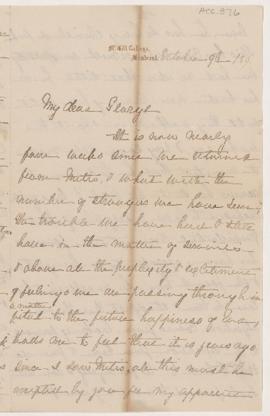 ACC. 976
McGill College,
Montreal, October 9th 18
My dear George
It is now nearly
four weeks since we returned
from Metis, & what with the
number of strangers we have seen,
the trouble we have had & still
have in the matter of servants
& above all the perplexity & excitement
of feeling we are passing through in
a matter
to the future happiness of
leads me to feel that it is years ago
since I saw Metis, all this must be
accepted by you for my apparent